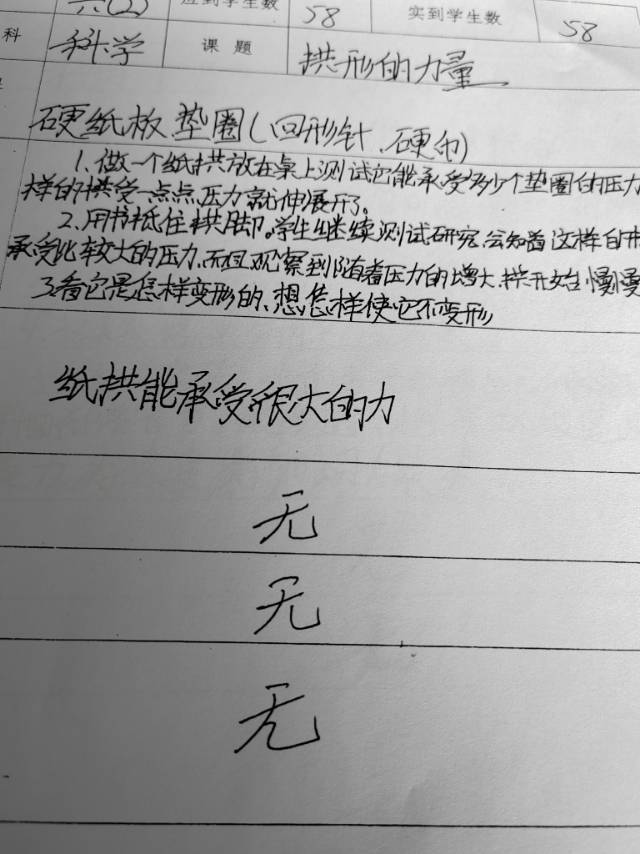 六(2) 应到学生数 58 实到学生数 58
科 科学 课题 拱形的力量
硬纸板 垫圈(回形针、硬币)
1、做一个纸拱放在桌上测试它能承受多少个垫圈的压力
样的拱受一点点压力就伸展开了。
2、用书抵住拱脚。学生继续测试研究,会知道这样的
承受比较大的压力,而且观察到随着压力的增大,拱开始慢慢
3、看它是怎样变形的、想怎样使它不变形
纸拱能承受很大的力
无
无
无